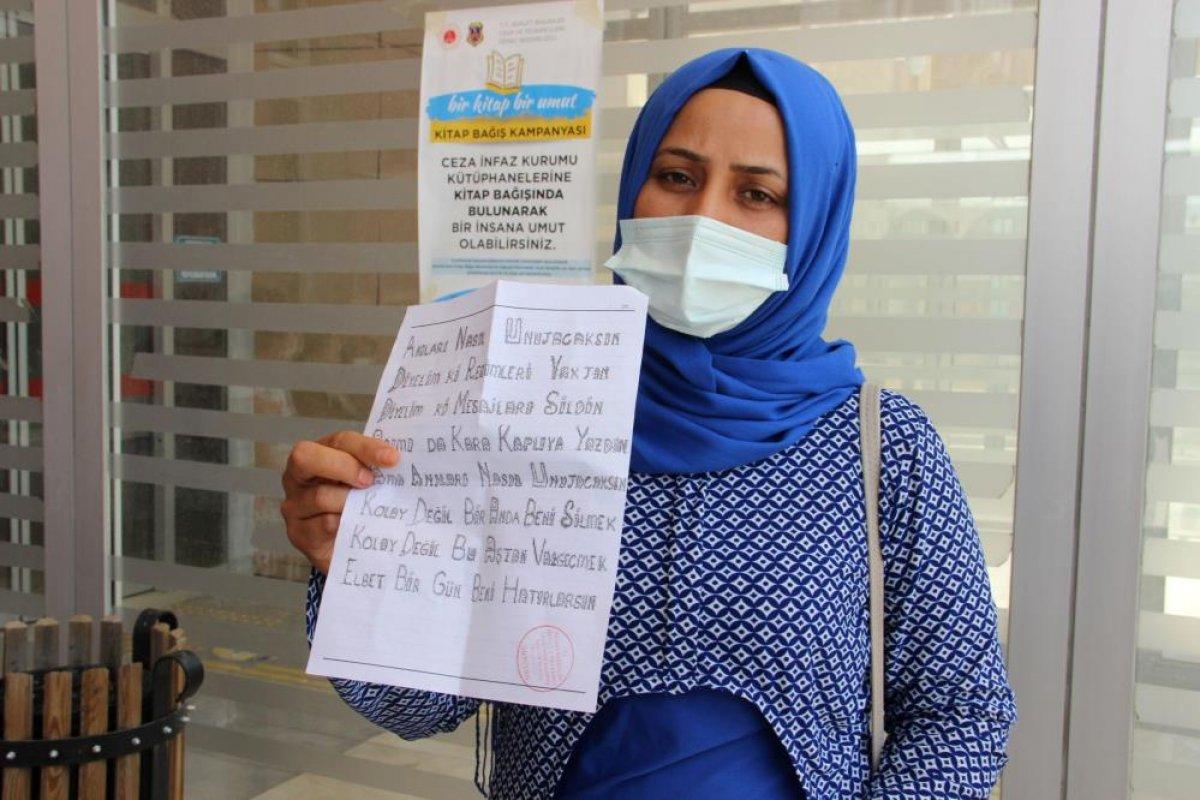 T.C. ADALET BAKANLIĞI
CEZA VE TEVKİFEVLERİ
GENEL MÜDÜRLÜĞÜ
bir kitap bir umut
KİTAP BAĞIŞ KAMPANYASI
CEZA İNFAZ KURUMU
KÜTÜPHANELERİNE
KİTAP BAĞIŞINDA
BULUNARAK
BİR İNSANA UMUT
OLABİLİRSİNİZ.
NASIL UNUJACAKSIN
DİYELİM Kİ RESİMLERİ YAKJIN
DİYELİM Kİ MESAJLARI SİLDİN
DA KARA KAPLIYA YAZDIN
ANILARI NASIL UNUJACAKSIN
KOLAY DEĞİL BİR ANDA BENİ SİLMEK
KOLAY DEĞİL BU AŞTAN VAZGEÇMEK
ELBET BİR GÜN BENİ HATIRLARSIN